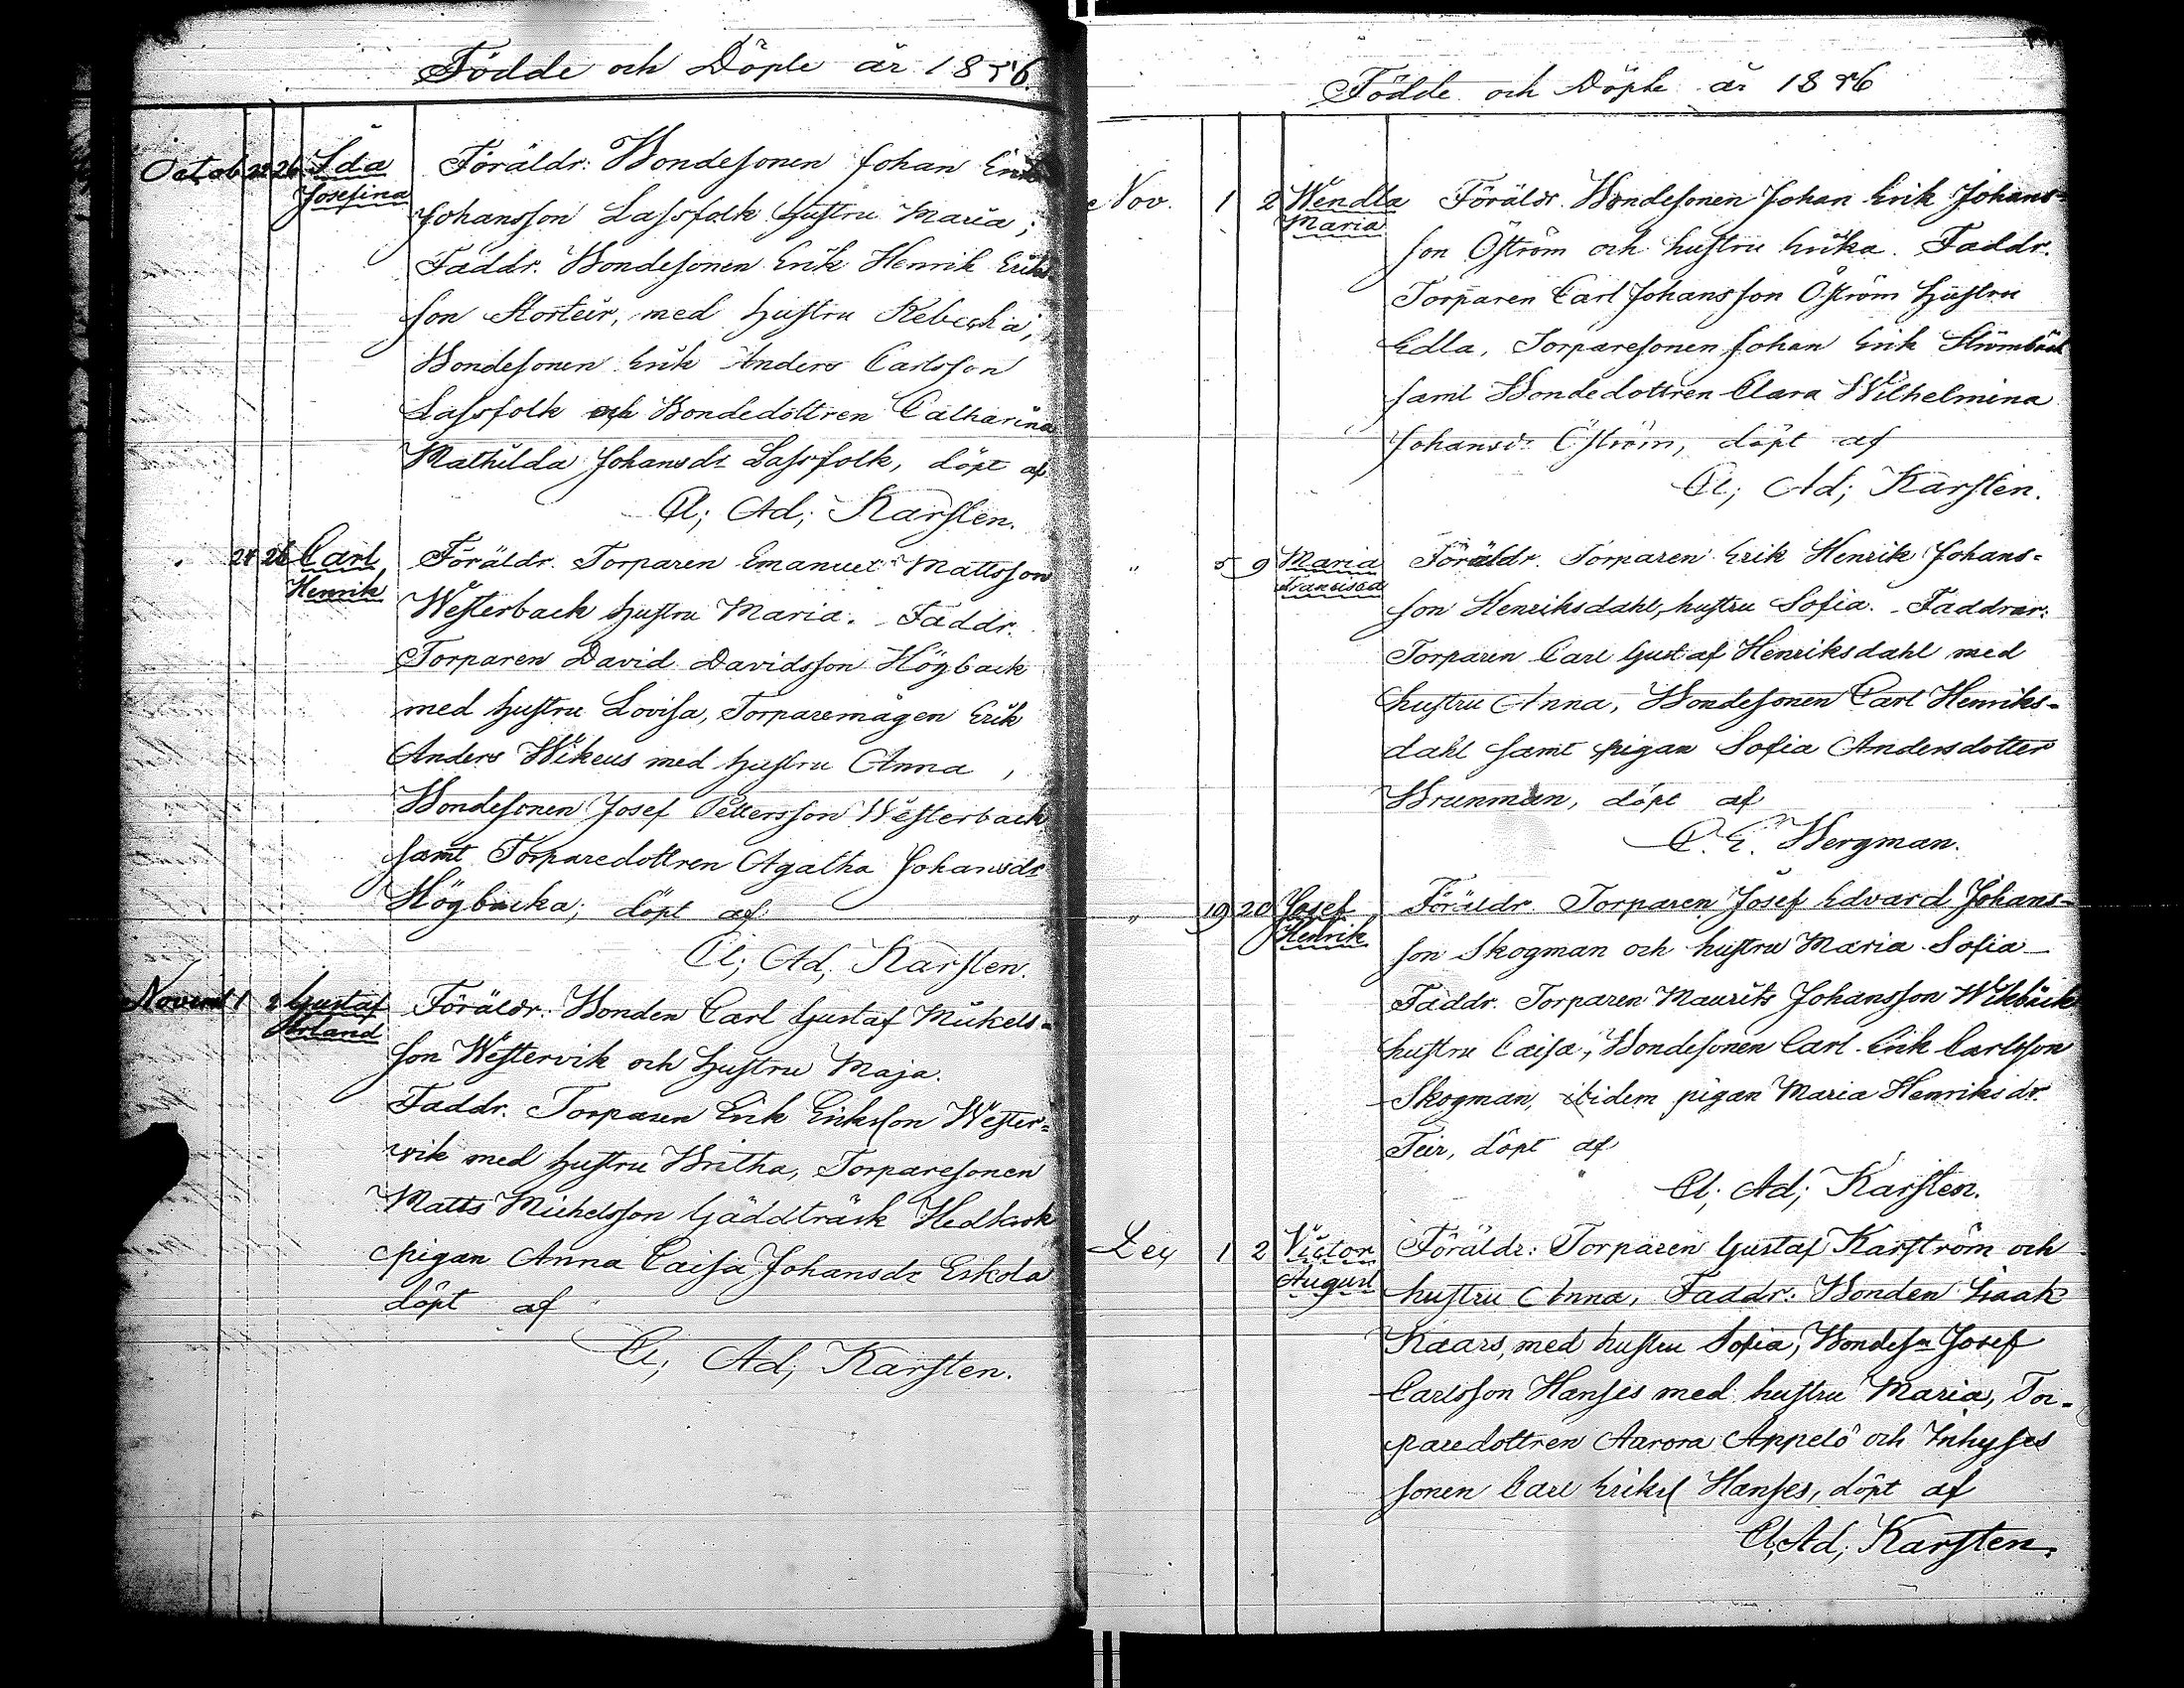 Födde och Döpte år 1886.
Octob 22 26 Ida Föräldr: Bondesonen Johan Erik
Josefina
Johansson Lassfolk Hustru Maria;
Faddr. Bondesonen Erik Henrik Eriks-
son Storteir, med hustru Rebecka,
Bondesonen Erik Anders Carlsson
Lassfolk och Bondedottren Catharina
Mathilda Johansdr Lassfolk, döpt af
Cl; Ad; Karsten.
24 26 Carl Föräldr. Torparen Emanuel Mattsson
Henrik
Westerback hustru Maria. Faddr.
Torparen David Davidsson Högback
med hustru Lovisa, Torparemågen Erik
Anders Wikeus med hustru Anna,
Bondesonen Josef Pettersson Westerback
samt Torparedottren Agatha Johansdr
Högbacka; döpt af
Cl; Ad; Karsten.
Novemb 1 2 Gustaf Föräldr. Bonden Carl Gustaf Mickels=
Arland
son Westervik och hustru Maja.
Faddr. Torparen Erik Eriksson Wester=
vik med hustru Britha, Torparesonen
Matts Michelsson Gäddträsk
pigan Anna Caisa Johansdr Eskola
döpt af
Cl; Ad; Karsten.
Födde och Döpte år 1886
Nov. 1 2 Wendla Föräldr. Bondesonen Johan Erik Johans=
Maria
son Öström och hustru Erika. Faddr.
Torparen Carl Johansson Öström hustru
Edla, Torparesonen Johan Erik Strömbäck
samt Bondedottren Clara Wilhelmina
Johansdr Öström, döpt af
Cl; Ad; Karsten.
" 5 9 Maria Föräldr. Torparen Erik Henrik Johans=
Francisca
son Henriksdahl, hustru Sofia. Faddrar:
Torparen Carl Gustaf Henriksdahl med
hustru Anna, Bondesonen Carl Henriks-
dahl samt pigan Sofia Andersdotter
Brunman, döpt af
C. E. Bergman.
" 19 20 Josef Föräldr. Torparen Josef Edvard Johans-
Henrik
son Skogman och hustru Maria Sofia
Faddr. Torparen Maurits Johansson Wikbäck
hustru Caisa, Bondesonen Carl Erik Carlsson
Skogman, ibidem pigan Maria Henriksdr.
Teir, döpt af
Cl; Ad; Karsten.
1 2 Victor Föräldr: Torparen Gustaf Karström och
August
hustru Anna, Faddr: Bonden Isaak
Kaars, med hustru Sofia, Bondesn Josef
Carlsson Hanses med hustru Maria, Tor-
paredottren Aurora Appelö och Inhyses
sonen Carl Hanses, döpt af
Cl; Ad; Karsten.